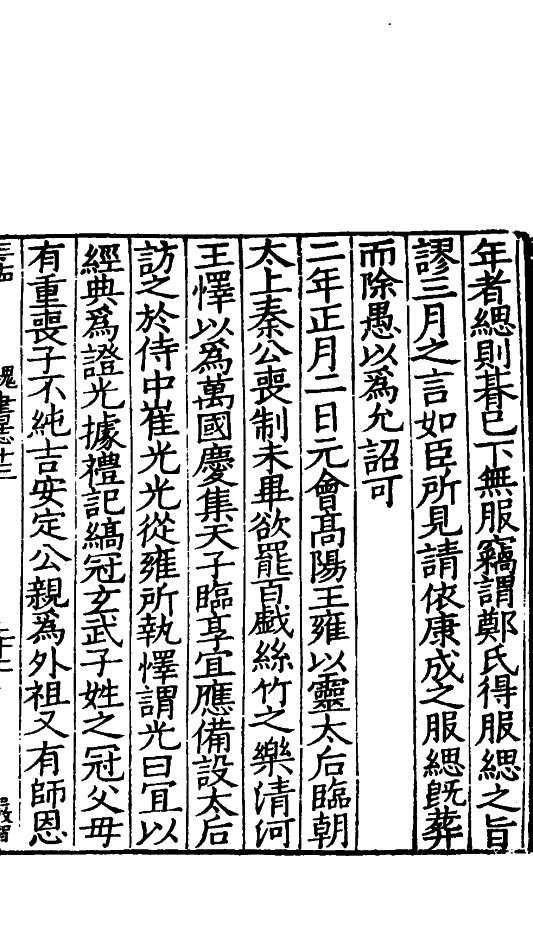 年者緦則朞已下無服竊謂鄭氏得服緦之旨
謬三月之言如臣所見請依康成之服緦既葬
而除愚以爲允詔可
二年正月二日元會髙陽王雍以靈太后臨朝
太上秦公喪制未畢欲罷百戲絲竹之樂清河
王懌以爲萬國慶集天子臨享宜應備設太后
訪之於侍中崔光光從雍所執懌謂光曰宜以
經典爲證光據禮記縞冠玄武子姓之冠父母
有重喪子不純吉安定公親爲外祖又有師恩